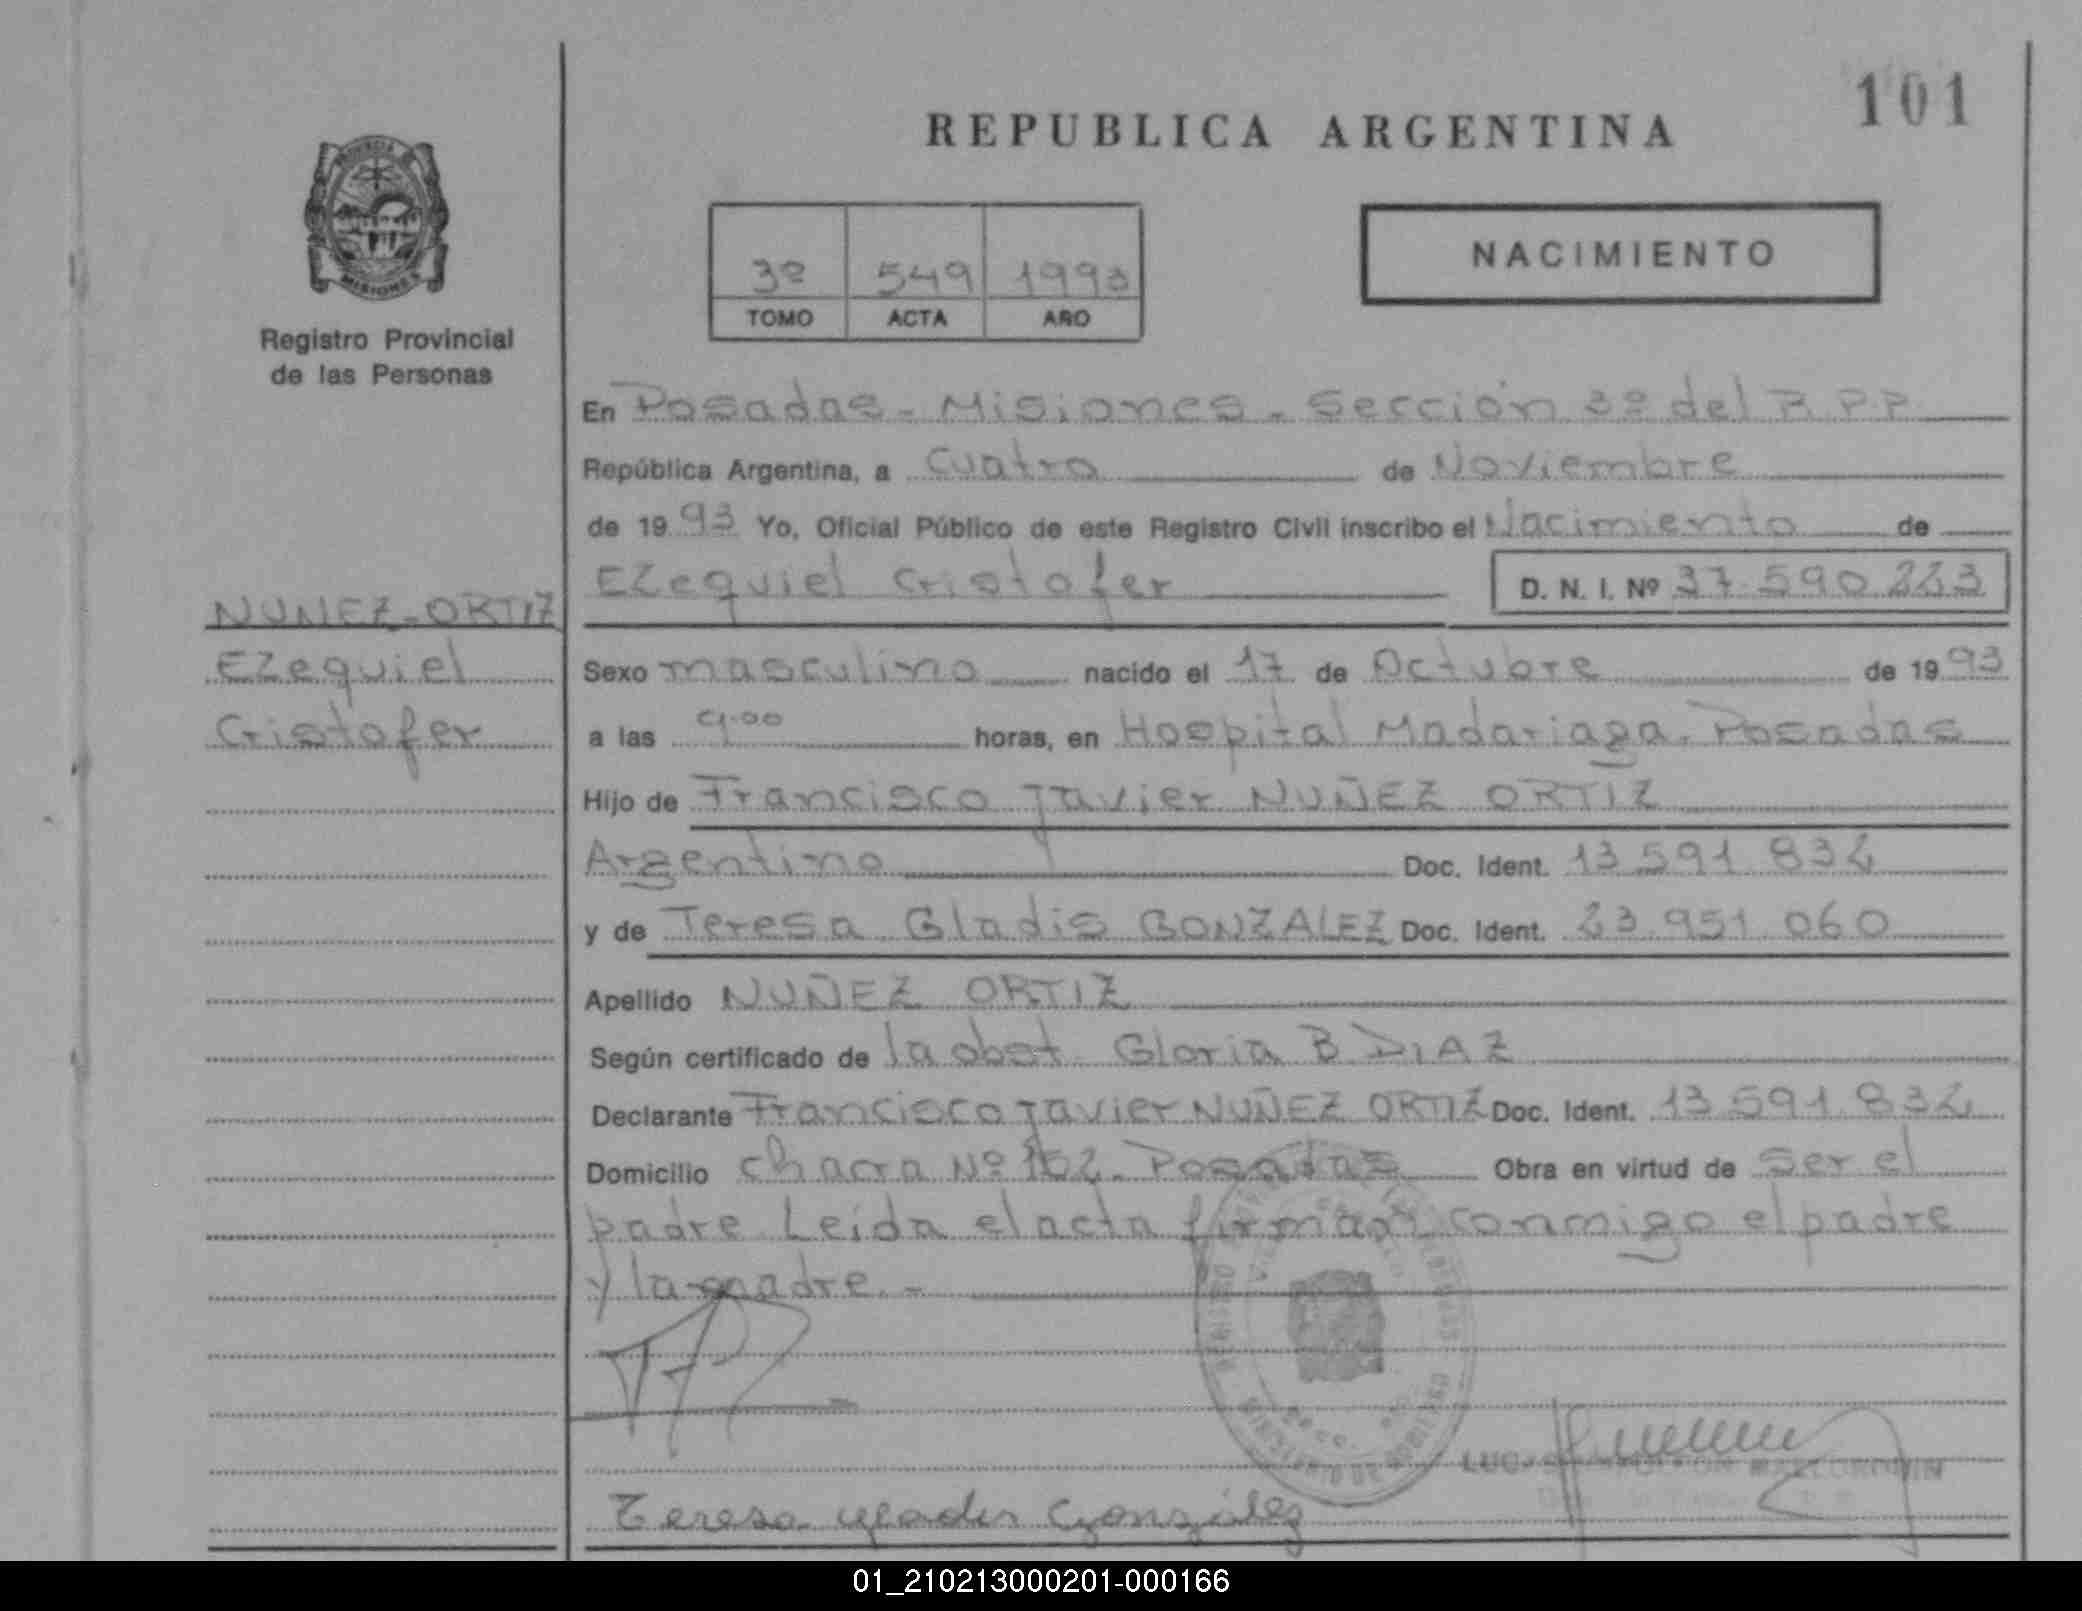 101
REPUBLICA ARGENTINA
PROVINCIA DE
MISIONES
Registro Provincial
de las Personas
3º 549 1993
TOMO ACTA AÑO
NACIMIENTO
En Posadas - Misiones - Sección 3º del R.P.P.
República Argentina, a Cuatro de Noviembre
de 1993 Yo, Oficial Público de este Registro Civil inscribo el Nacimiento de
Ezequiel Cristofer D. N. I. Nº 37.590.223
NUÑEZ-ORTIZ
Ezequiel
Cristofer
Sexo masculino nacido el 17 de Octubre de 1993
a las 9.00 horas, en Hospital Madariaga. Posadas
Hijo de Francisco Javier NUÑEZ ORTIZ
Argentino Doc. Ident. 13.591.832
y de Teresa Gladis GONZALEZ Doc. Ident. 23.951.060
Apellido NUÑEZ ORTIZ
Según certificado de la obst. Gloria B DIAZ
Declarante Francisco Javier NUÑEZ ORTIZ Doc. Ident. 13.591.832
Domicilio Chacra Nº 162. Posadas Obra en virtud de Ser el
padre. Leída el acta firman conmigo el padre
y la madre. -
Teresa Gladis González
01_210213000201-000166